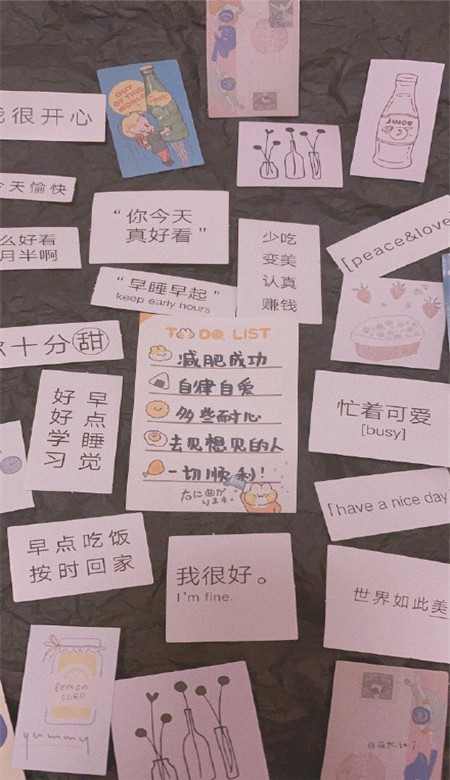 我很开心
OUT
OF THIS
WORLD
JUICE
今天愉快
“你今天
真好看”
少吃
变美
认真
赚钱
[peace&love
么好看
月半啊
“早睡早起”
keep early hours
TO DO LIST
减肥成功
自律自爱
多些耐心
去见想见的人
一切顺利!
右に曲が
ります。
十分甜
早点睡觉
好好学习
忙着可爱
[busy]
have a nice day
早点吃饭
按时回家
我很好。
I'm fine.
世界如此美
lemon
CURD
yummy